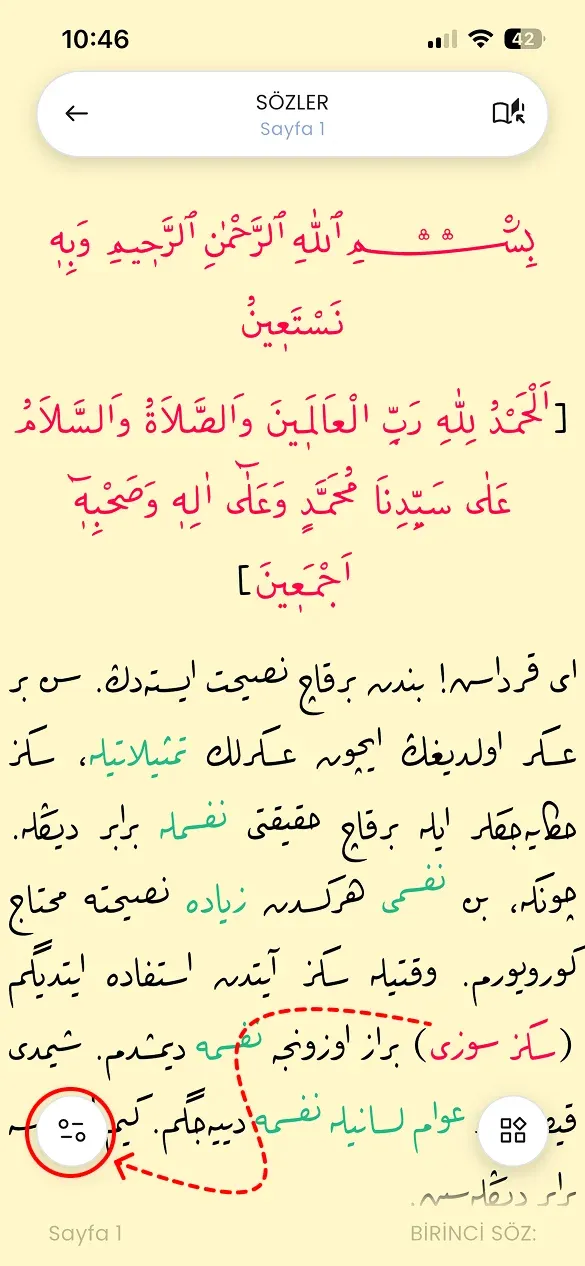 10:46
42
SÖZLER
Sayfa 1
بِسْمِ ٱللّٰهِ ٱلرَّحْمٰنِ ٱلرَّحٖيمِ وَبِهٖ
نَسْتَعٖينُ
[اَلْحَمْدُ لِلّٰهِ رَبِّ الْعَالَمٖينَ وَالصَّلَاةُ وَالسَّلَامُ
عَلٰى سَيِّدِنَا مُحَمَّدٍ وَعَلٰٓى اٰلِهٖ وَصَحْبِهٖٓ
اَجْمَعٖينَ]
ای قرداش! بندن برقاچ نصیحت ایستەدڭ. سن بر
عسکر اولدیغڭ ایچون عسکرلك تمثیلاتیله، سکز
حکایه‌جقلر ایله برقاچ حقیقتی نفسمله برابر دیڭله.
چونکه، بن نفسمی هرکسدن زیاده نصیحته محتاج
کورویورم. وقتیله سکز آیتدن استفاده ایتدیگم
(سکز سوزی) براز اوزونجه نفسمه دیمشدم. شیمدی
عوام لسانیله نفسمه دییه‌جگم.
برابر دیڭله‌سین.
Sayfa 1
BİRİNCİ SÖZ: